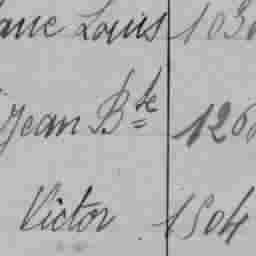 Louis 103
Jean Bte 126
Victor 1504